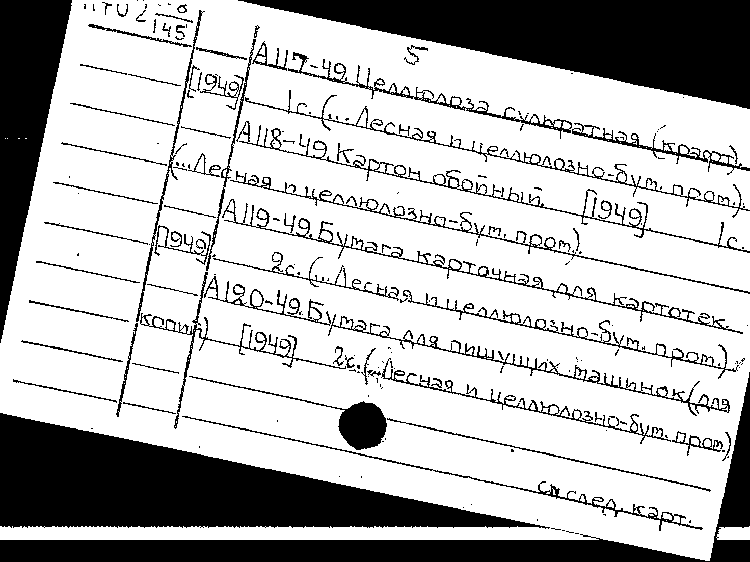 5
145
А117-49. Целлюлоза сульфатная (крафт).
[1949]. 1с. (... Лесная и целлюлозно-бум. пром.).
А118-49. Картон обойный. [1949]. 1с.
(... Лесная и целлюлозно-бум. пром).
А119-49. Бумага карточная для картотек.
[1949]. 2с. (... Лесная и целлюлозно-бум. пром.).
А120-49. Бумага для пишущих машинок (для
копий) [1949] 2с. (... Лесная и целлюлозно-бум. пром.)
см след. карт.